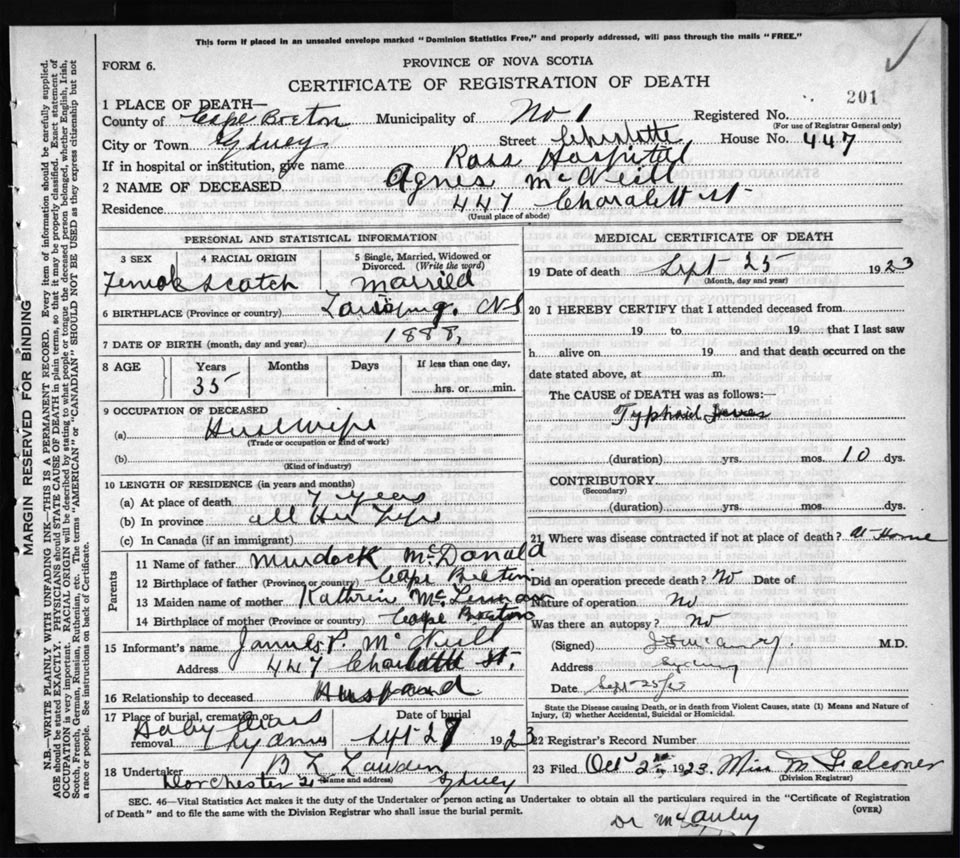 This form if placed in an unsealed envelope marked "Dominion Statistics Free," and properly addressed, will pass through the mails "FREE."
FORM 6.
PROVINCE OF NOVA SCOTIA
CERTIFICATE OF REGISTRATION OF DEATH
201
1 PLACE OF DEATH—
County of Cape Breton Municipality of No 1 Registered No.
(For use of Registrar General only)
City or Town Sydney Street Charlotte House No. 447
If in hospital or institution, give name Ross Hospital
2 NAME OF DECEASED Agnes McNeill
Residence 447 Charalett st
(Usual place of abode)
PERSONAL AND STATISTICAL INFORMATION
3 SEX 4 RACIAL ORIGIN 5 Single, Married, Widowed or Divorced. (Write the word)
Female Scotch Married
6 BIRTHPLACE (Province or country) N S
7 DATE OF BIRTH (month, day and year) 1888,
8 AGE Years Months Days If less than one day,
35 hrs. or min.
9 OCCUPATION OF DECEASED
(a) Huse wife
(Trade or occupation or kind of work)
(b)
(Kind of industry)
10 LENGTH OF RESIDENCE (in years and months)
(a) At place of death 7 years
(b) In province all Her Life
(c) In Canada (if an immigrant)
Parents
11 Name of father Murdock McDonald
12 Birthplace of father (Province or country) Cape Breton
13 Maiden name of mother Kathrin McLennan
14 Birthplace of mother (Province or country) Cape Breton
15 Informant's name James P. McNeill
Address 447 Charlotte St.
16 Relationship to deceased Husband
17 Place of burial, cremation or removal Date of burial
Sept 27 1923
18 Undertaker
(Name and address)
Dorchester st Sydney
MEDICAL CERTIFICATE OF DEATH
19 Date of death Sept 25 1923
(Month, day and year)
20 I HEREBY CERTIFY that I attended deceased from
19 to 19 that I last saw
h alive on 19 and that death occurred on the
date stated above, at m.
The CAUSE of DEATH was as follows:—
Typhoid fever
(duration) yrs. mos. 10 dys.
CONTRIBUTORY
(Secondary)
(duration) yrs. mos. dys.
21 Where was disease contracted if not at place of death? At Home
Did an operation precede death? No Date of
Nature of operation No
Was there an autopsy? No
(Signed) M.D.
Address Sydney
Date Sept 25/23
State the Disease causing Death, or in death from Violent Causes, state (1) Means and Nature of Injury, (2) whether Accidental, Suicidal or Homicidal.
22 Registrar's Record Number
23 Filed Oct 2nd 1923 Miss M Falconer
(Division Registrar)
SEC. 46—Vital Statistics Act makes it the duty of the Undertaker or person acting as Undertaker to obtain all the particulars required in the "Certificate of Registration
of Death" and to file the same with the Division Registrar who shall issue the burial permit.
(OVER)
Dr McAuley
MARGIN RESERVED FOR BINDING
N.B.—WRITE PLAINLY WITH UNFADING INK—THIS IS A PERMANENT RECORD. Every item of information should be carefully supplied.
AGE should be stated EXACTLY. PHYSICIANS should STATE CAUSE OF DEATH in plain terms, so that it may be properly classified. Exact statement of
OCCUPATION is very important. RACIAL ORIGIN will be described by stating to what people or tongue the deceased person belonged, whether English, Irish,
Scotch, French, German, Russian, Ruthenian, etc. The terms "AMERICAN" or "CANADIAN" SHOULD NOT BE USED as they express citizenship but not
a race or people. See instructions on back of Certificate.